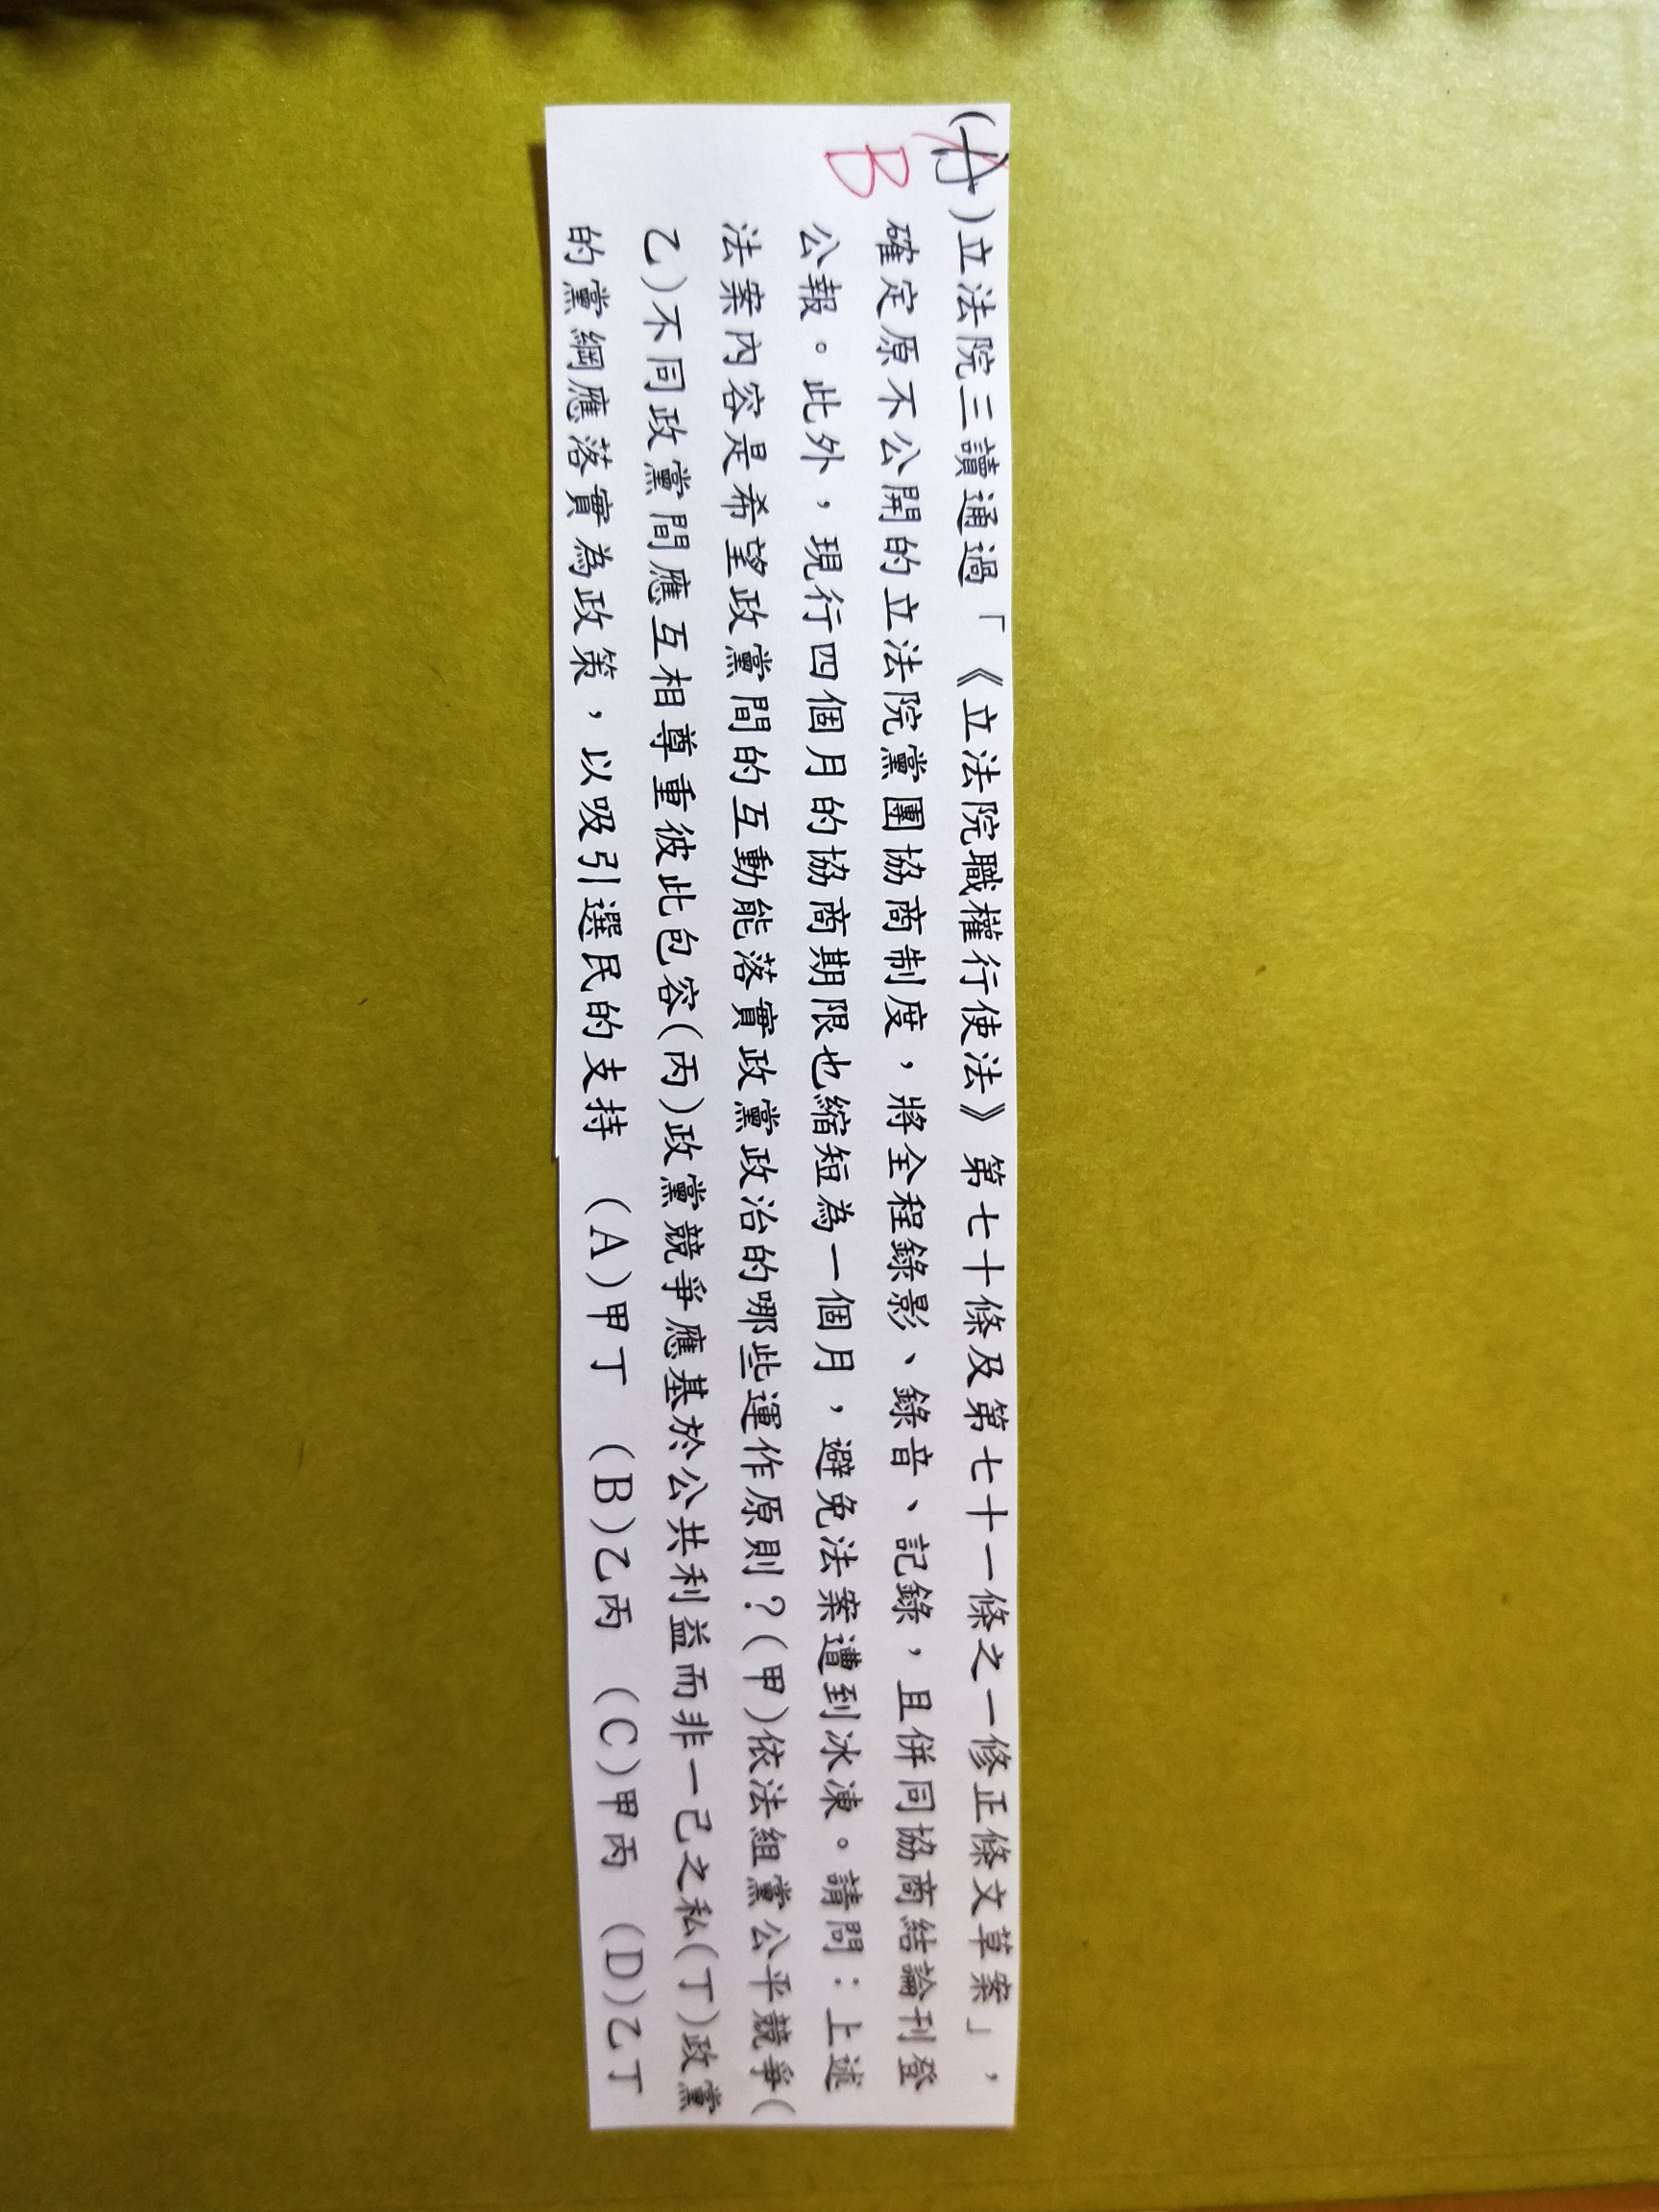 (A)立法院三讀通過「《立法院職權行使法》第七十條及第七十一條之一修正條文草案」，
B
確定原不公開的立法院黨團協商制度，將全程錄影、錄音、記錄，且併同協商結論刊登
公報。此外，現行四個月的協商期限也縮短為一個月，避免法案遭到冰凍。請問：上述
法案內容是希望政黨間的互動能落實政黨政治的哪些運作原則？(甲)依法組黨公平競爭(
乙)不同政黨間應互相尊重彼此包容(丙)政黨競爭應基於公共利益而非一己之私(丁)政黨
的黨綱應落實為政策，以吸引選民的支持 (A)甲丁 (B)乙丙 (C)甲丙 (D)乙丁